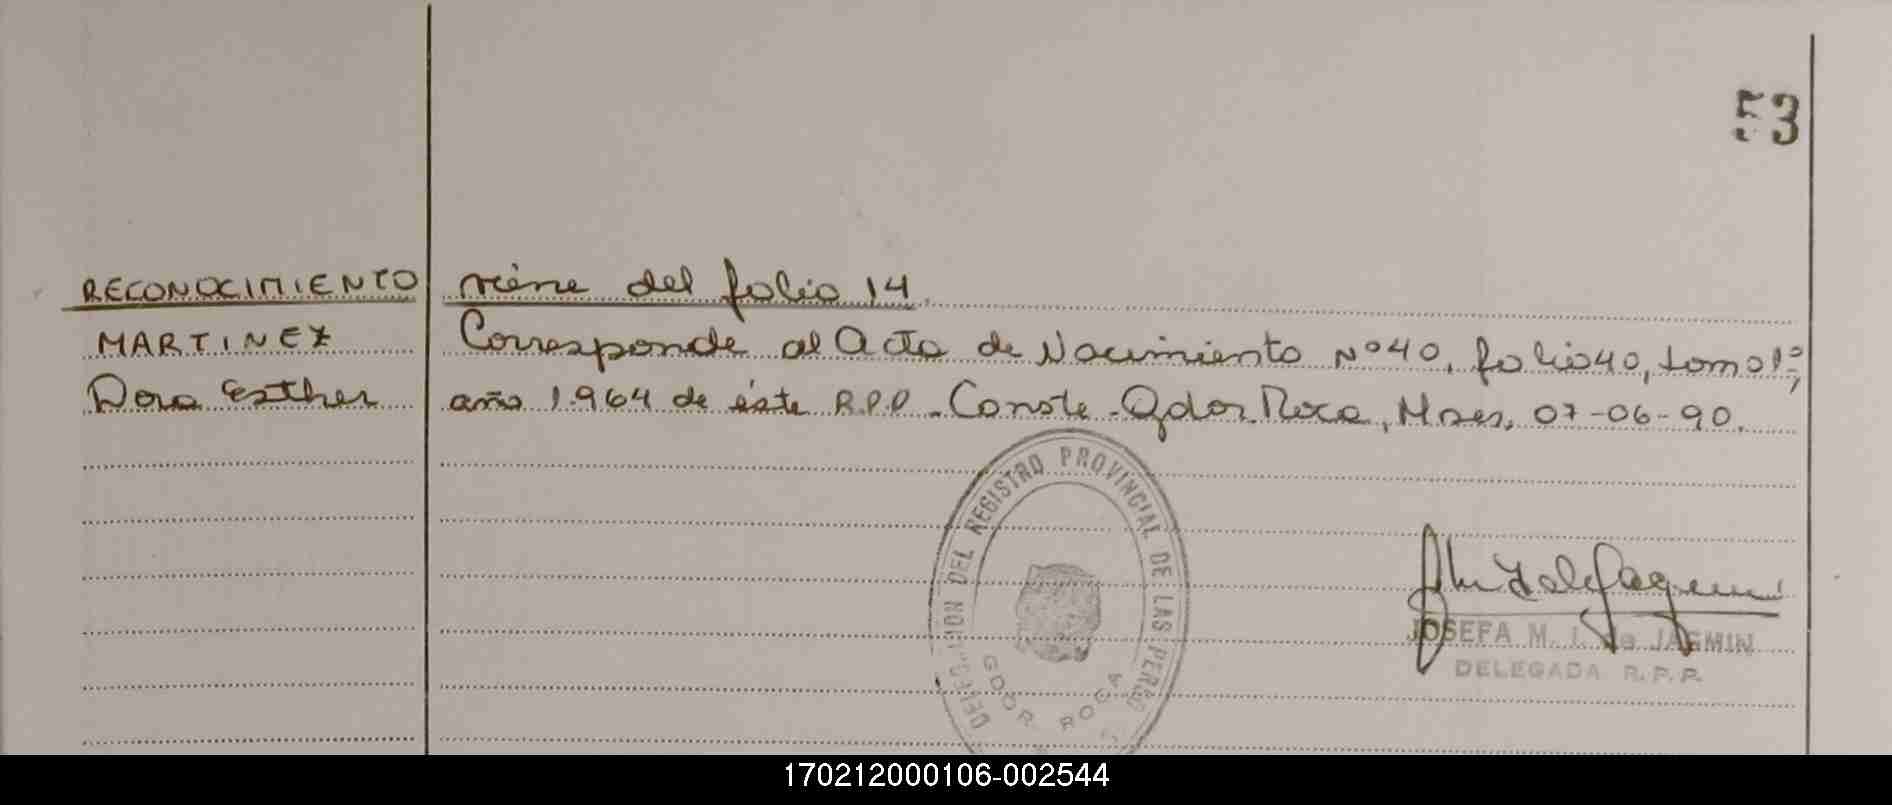 53
RECONOCIMIENTO
viene del folio 14
MARTINEZ
Corresponde al Acta de Nacimiento Nº 40, folio 40, tomo 1º,
Dora Esther
año 1.964 de éste R.P.P. Conste - Gdor. Roca, Mnes, 07-06-90.
DELEGACION DEL REGISTRO PROVINCIAL DE LAS PERSO
GDOR ROCA
JOSEFA M. I. de JASMIN
DELEGADA R.P.P.
170212000106-002544